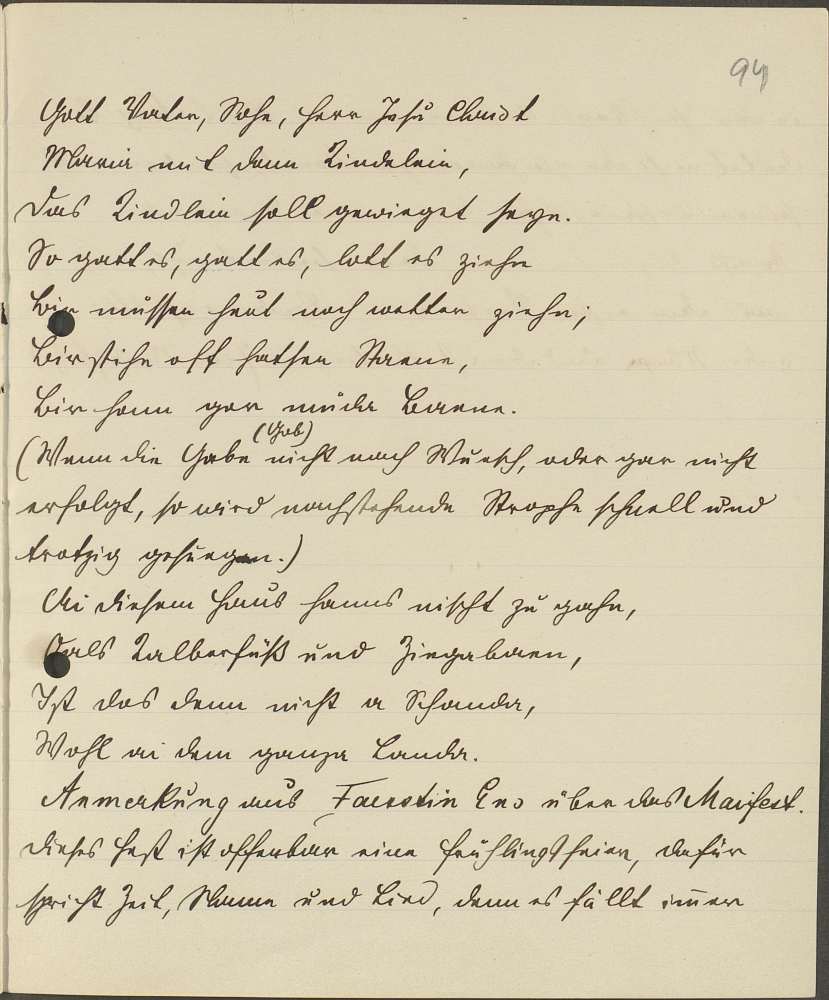 94
Gott Vater, Sohn, Herr Jesu Christ
Maria mit dem Kindelein,
Das Kindlein soll gewieget seyn.
So gatt es, gatt es, lott es ziehn
Wir müssen heut noch wetter ziehn;
Wir stihn off hatsen Steene,
Wir honn gor müde Beene.
(Gob)
(Wenn die Gabe nicht nach Wunsch, oder gar nicht
erfolgt, so wird nachstehende Strophe schnell und
trotzig gesungen.)
Ai diesem Haus honns nischt zu gahn,
Oals Kalberfüß und Ziegabeen,
Ist das denn nicht a Schande,
Wohl ai dem ganza Lande.
Anmerkung aus Faustin Ens über das Maifest.
Dieses Fest ist offenbar eine Frühlingsfeier, dafür
spricht Zeit, Name und Lied, denn es fällt immer